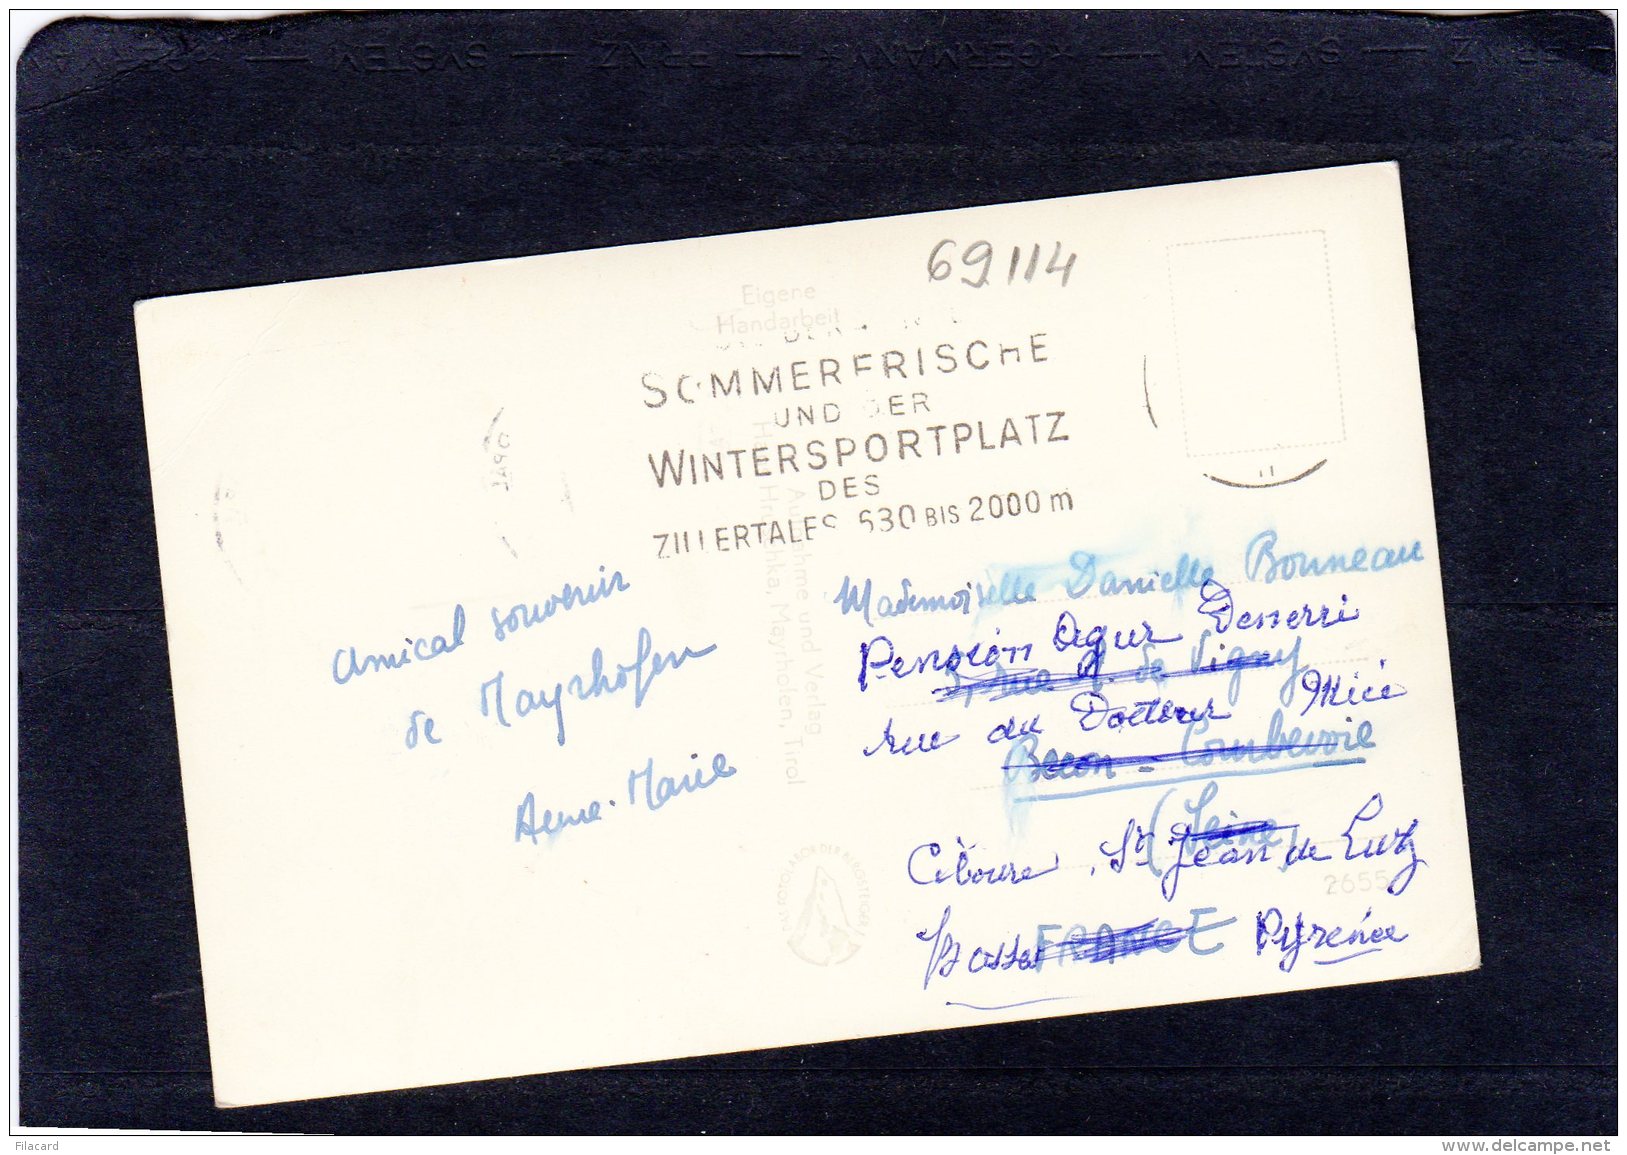 SYSTEM — PRINZ — GERMANY — SYSTEM — PRINZ
69114
Eigene
Handarbeit
SOMMERFRISCHE
UND DER
WINTERSPORTPLATZ
DES
ZILLERTALES 630 BIS 2000 m
Amical souvenir
de Mayrhofen
Anne-Marie
Aufnahme und Verlag
Hruschka, Mayrhofen, Tirol
Mademoiselle Danielle Bonneau
Pension
rue A. de Vigny
rue du Docteur Micé
Becon - Courbevoie
(Seine)
Ciboure, St Jean de Luz
2655
Basses FRANCE Pyrénée
Filacard
www.delcampe.net